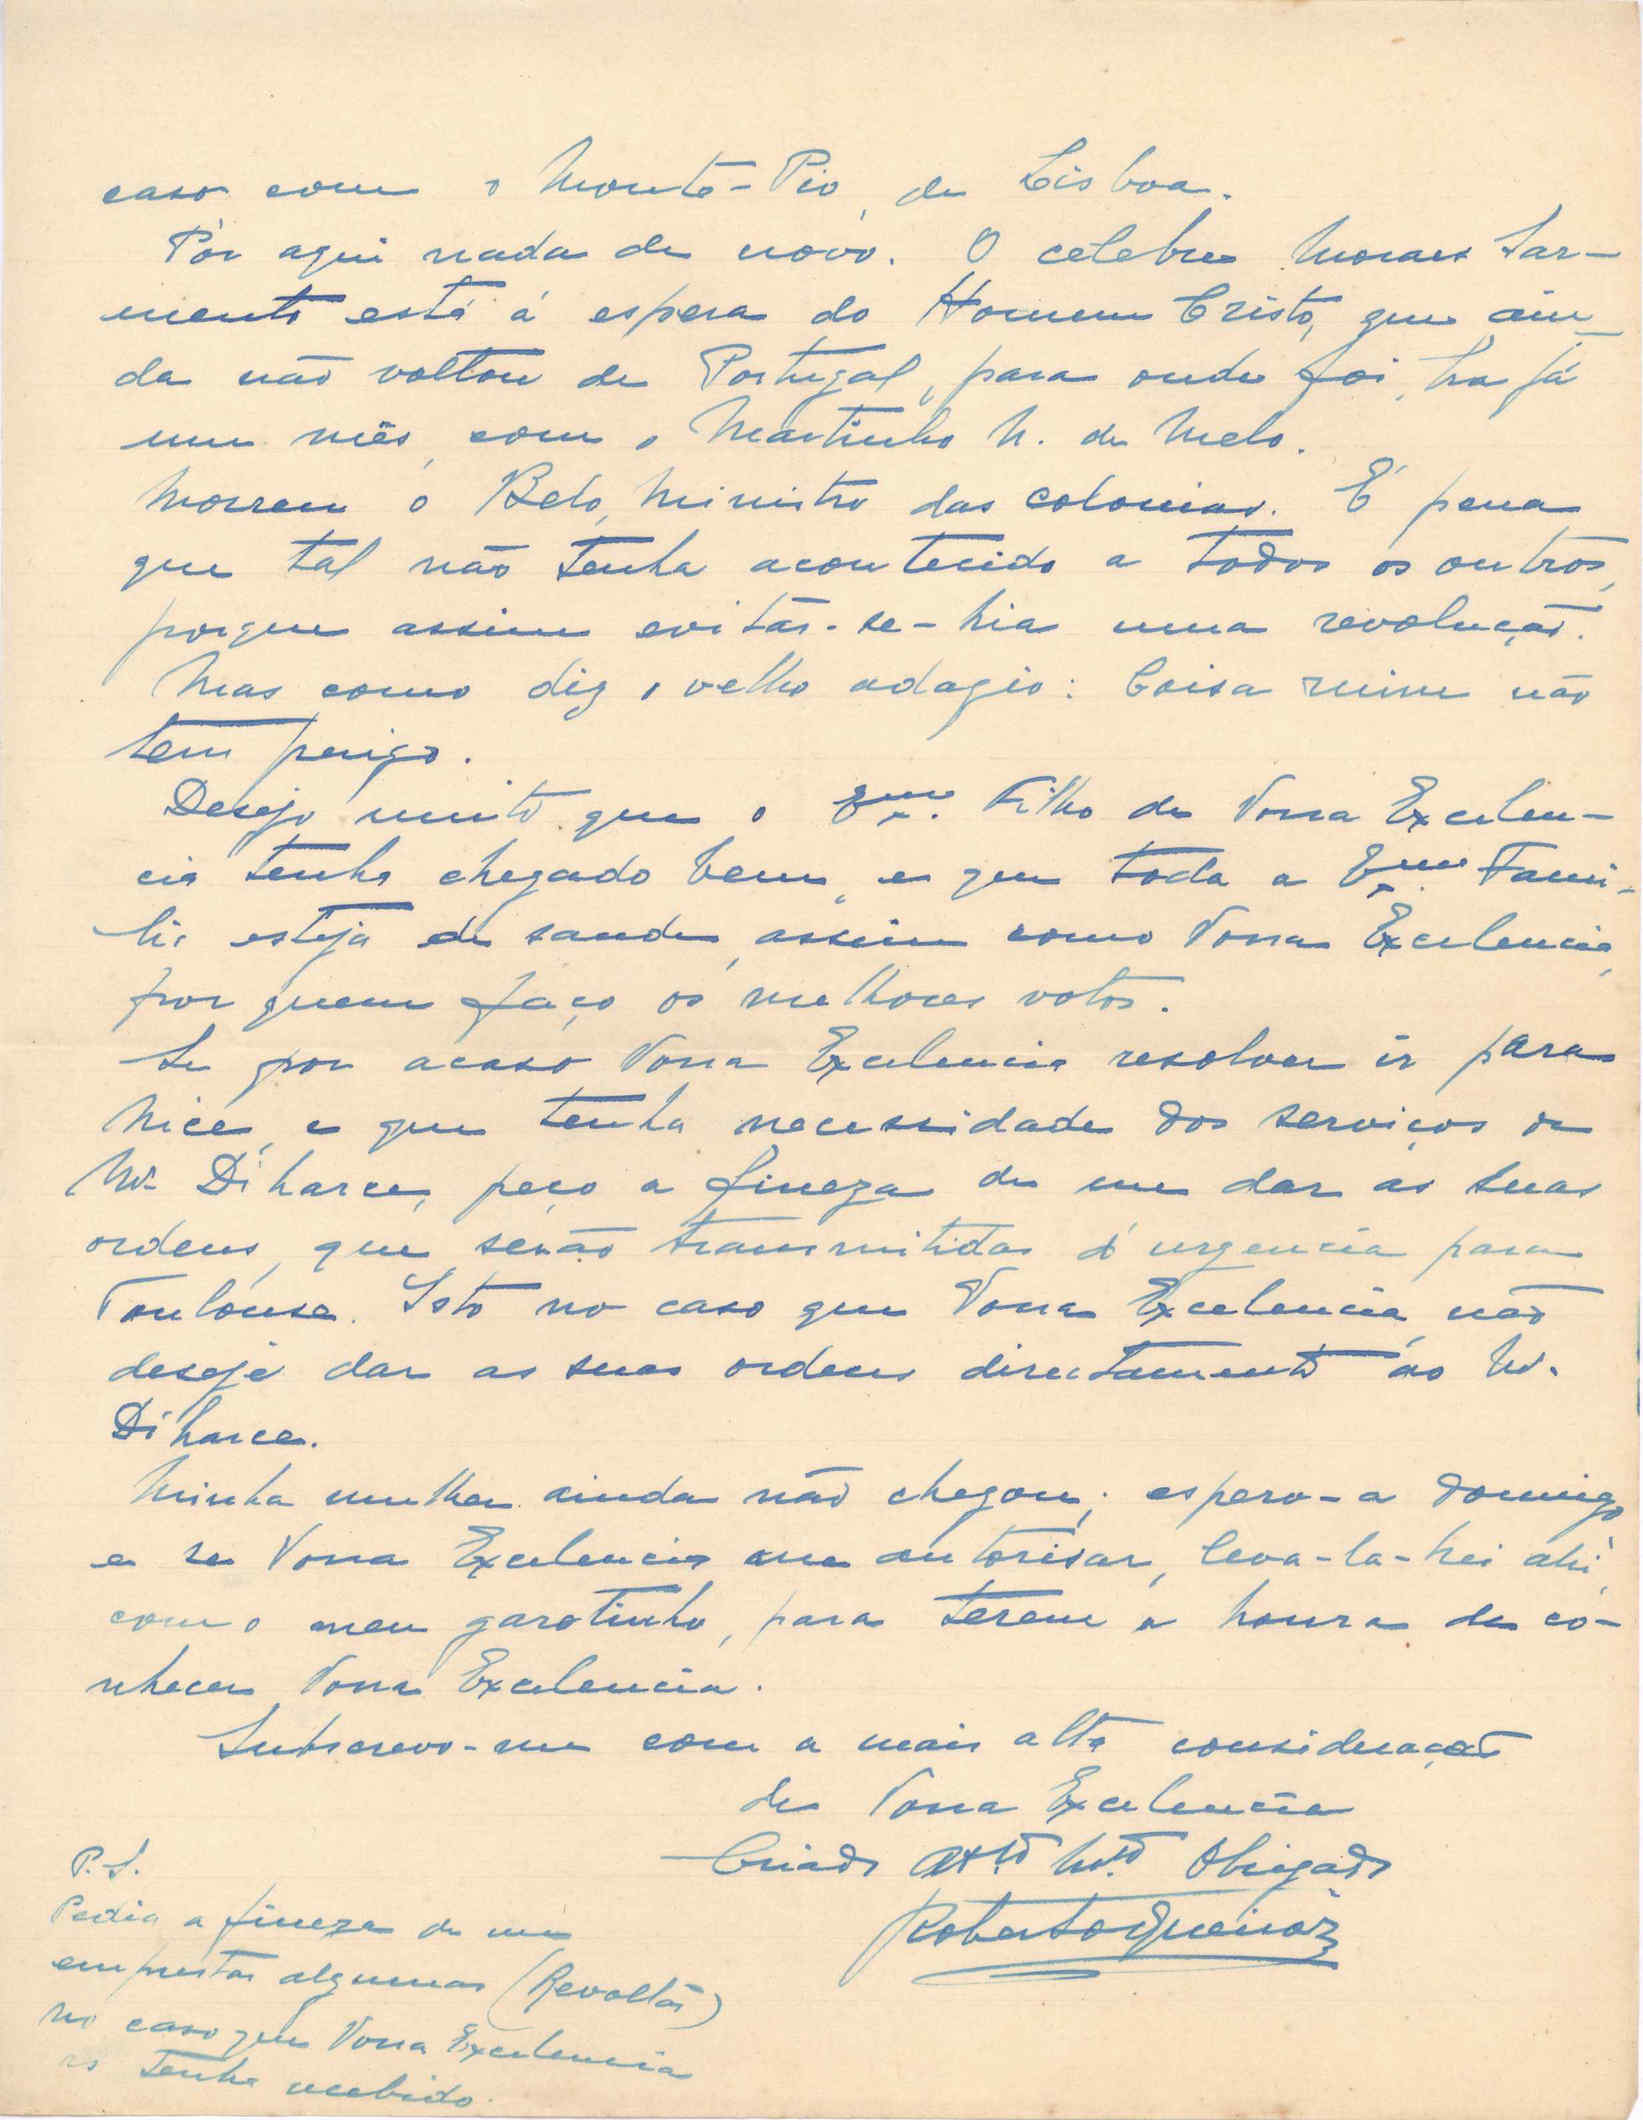 caso com o Monte-Pio, de Lisboa.
Pór aqui nada de novo. O celebre Moraes Sar-
mento está á espera do Homem Cristo, que ain-
da não voltou de Portugal, para onde foi, ha já
um mês, com o Martinho N. de Melo.
Morreu o Belo, Ministro das colonias. É pena
que tal não tenha acontecido a todos os outros,
porque assim evitár-se-hia uma revolução.
Mas como diz o velho adagio: Coisa ruim não
tem perigo.
Desejo muito que o Exmo. Filho de Vossa Excelen-
cia tenha chegado bem, e que toda a Exma. Fami-
lia esteja de saude, assim como Vossa Excelencia,
por quem faço os melhores votos.
Se por acaso Vossa Excelencia resolver ir para
Nice, e que tenha necessidade dos serviços de
Mr. Diharce, peço a fineza de me dar as suas
ordens, que serão transmitidas d'urgencia para
Toulouse. Isto no caso que Vossa Excelencia não
deseje dar as suas ordens directamente ao Mr.
Diharce.
Minha mulher ainda não chegou; espero-a domingo
e se Vossa Excelencia me autorisar, leva-la-hei ahi,
com o meu garotinho, para terem a honra de co-
nhecer Vossa Excelencia.
Subscrevo-me com a mais alta consideração
de Vossa Excelencia
Criado Atto. Mto. Obrigado
Roberto Queiroz
P.S.
Pedia a fineza de me
emprestar algumas (Revoltas)
no caso que Vossa Excelencia
as tenha recebido.